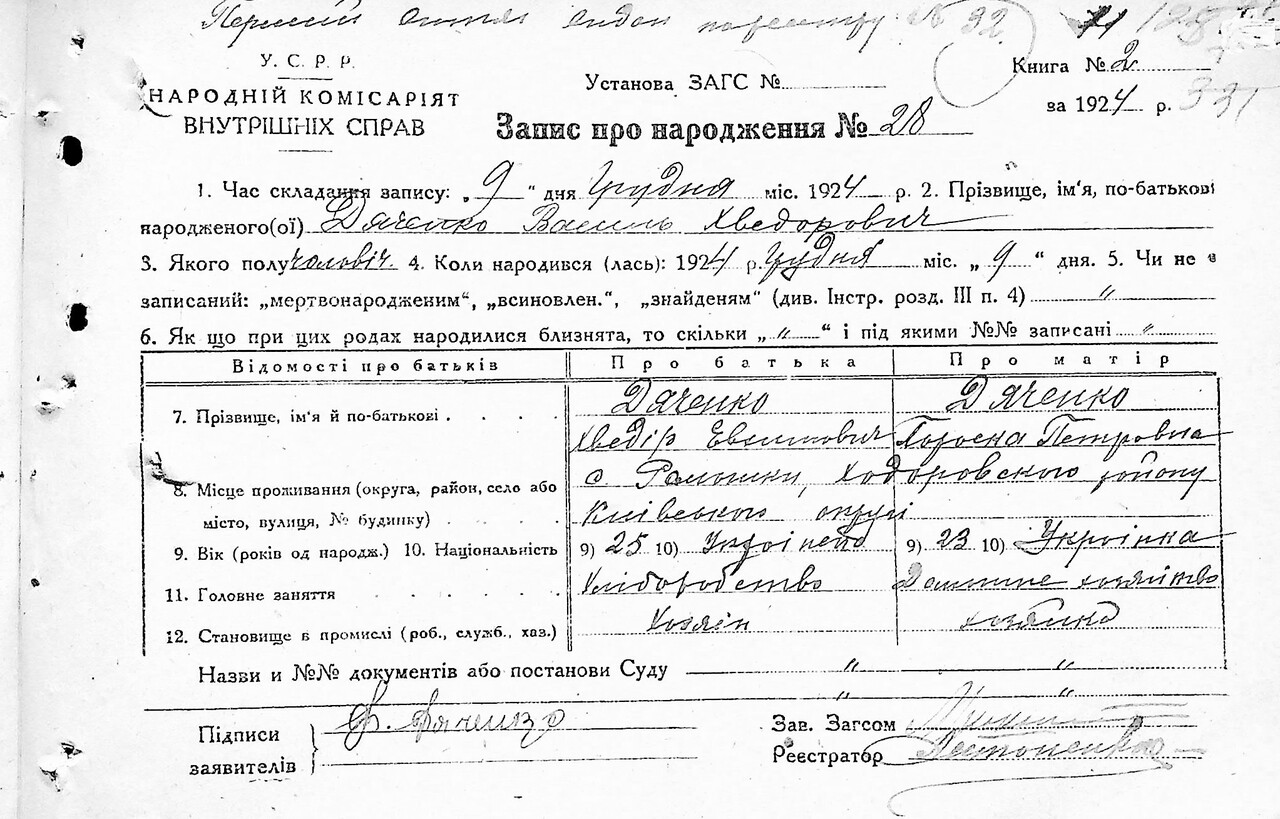 № 32.
У. С. Р. Р.
НАРОДНІЙ КОМІСАРІЯТ
ВНУТРІШНІХ СПРАВ
Установа ЗАГС №
Книга № 2
за 1924 р. 331
Запис про народження № 28
1. Час складання запису: „ 9 “ дня Грудня міс. 1924 р. 2. Прізвище, ім'я, по-батькові
народженого(ої) Дяченко Василь Хведорович
3. Якого полу чоловіч. 4. Коли народився (лась): 1924 р. Грудня міс. „ 9 “ дня. 5. Чи не є
записаний: „мертвонародженим“, „всиновлен.“, „знайденям“ (див. Інстр. розд. III п. 4) „
6. Як що при цих родах народилися близнята, то скільки „ „ “ і під якими №№ записані „
Відомості про батьків Про батька Про матір
7. Прізвище, ім'я й по-батькові . . . . . Дяченко Дяченко
Хведір Петровна
8. Місце проживання (округа, район, село або с. Ромашки, Ходоровського району
місто, вулиця, № будинку) . . . . Київської округи
9. Вік (років од народж.) 10. Національність 9) 25 10) Українець 9) 23 10) Українка
11. Головне заняття . . . . . . Хліборобство Домашне хозяйство
12. Становище в промислі (роб., служб., хаз.) Хозяін хозяйка
Назви и №№ документів або постанови Суду „ „
„ „
Підписи
заявителів
Ф. Дяченко
Зав. Загсом
Реєстратор